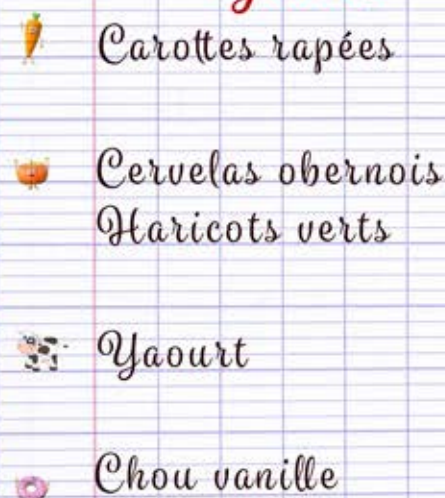 Carottes rapées
Cervelas obernois
Haricots verts
Yaourt
Chou vanille